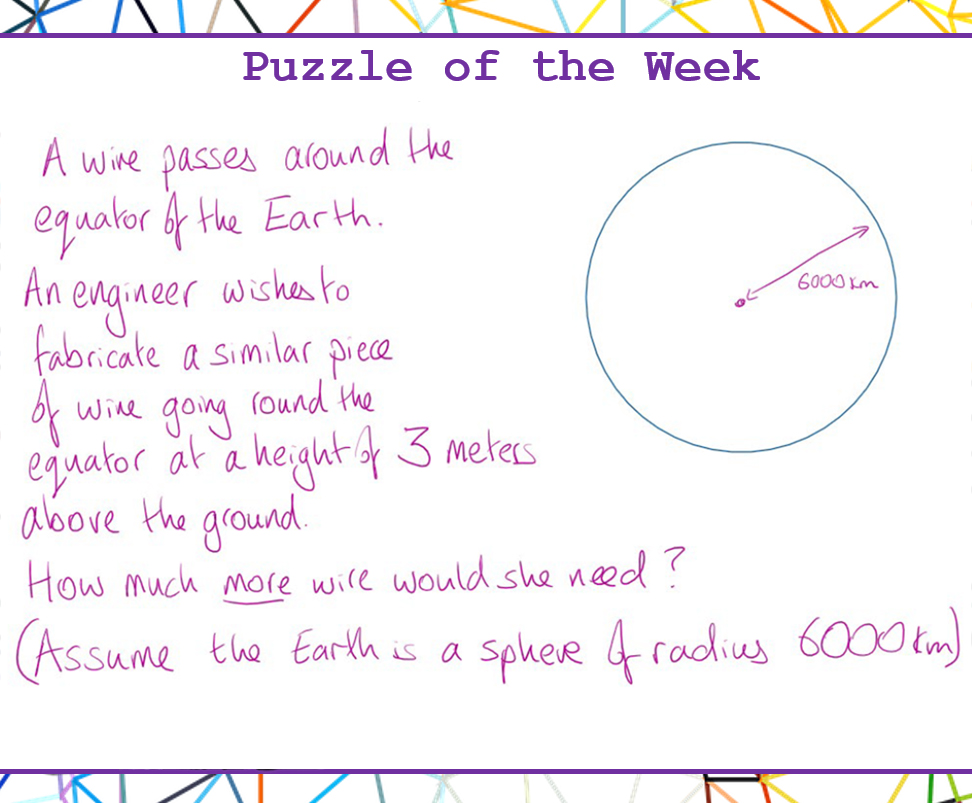 Puzzle of the Week
A wire passes around the
equator of the Earth.
An engineer wishes to
fabricate a similar piece
of wire going round the
equator at a height of 3 meters
above the ground.
How much more wire would she need?
(Assume the Earth is a sphere of radius 6000km)
6000 km